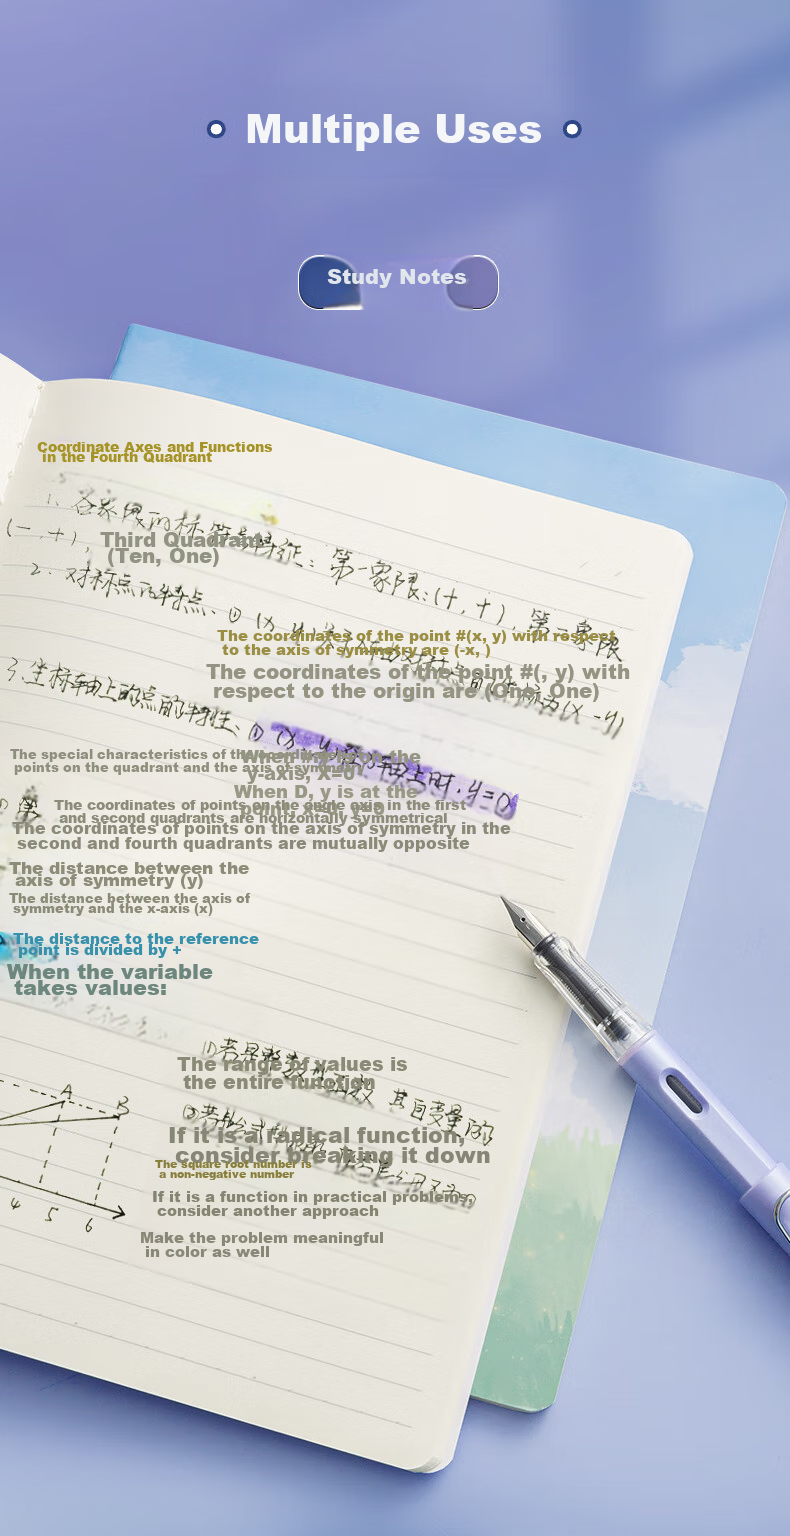 Multiple Uses
Study Notes
Coordinate Axes and Functions
in the Fourth Quadrant
1. 各象限的标符号特征: 第一象限:(+,+), 第二象限
(-,+),
Third Quadrant
(Ten, One)
2. 对称点的特点. ① (x, y)关于
The coordinates of the point #(x, y) with respect
to the axis of symmetry are (-x, )
The coordinates of the point #(, y) with
respect to the origin are (One, One)
标为(x -y)
3. 坐标轴上的点的特性: ① (x, y 轴上时. y=0
The special characteristics of the coordinate
points on the quadrant and the axis of symmetry
When # is on the
y-axis, X=0
When D, y is at the
point, x=0, y=0
第
The coordinates of points on the angle axis in the first
and second quadrants are horizontally symmetrical
The coordinates of points on the axis of symmetry in the
second and fourth quadrants are mutually opposite
The distance between the
axis of symmetry (y)
The distance between the axis of
symmetry and the x-axis (x)
The distance to the reference
point is divided by +
When the variable
takes values:
①若是整 函数 其自变量的
The range of values is
the entire function
②若
If it is a radical function,
consider breaking it down
The square root number is
a non-negative number
If it is a function in practical problems,
consider another approach
Make the problem meaningful
in color as well
A
B
4 5 6